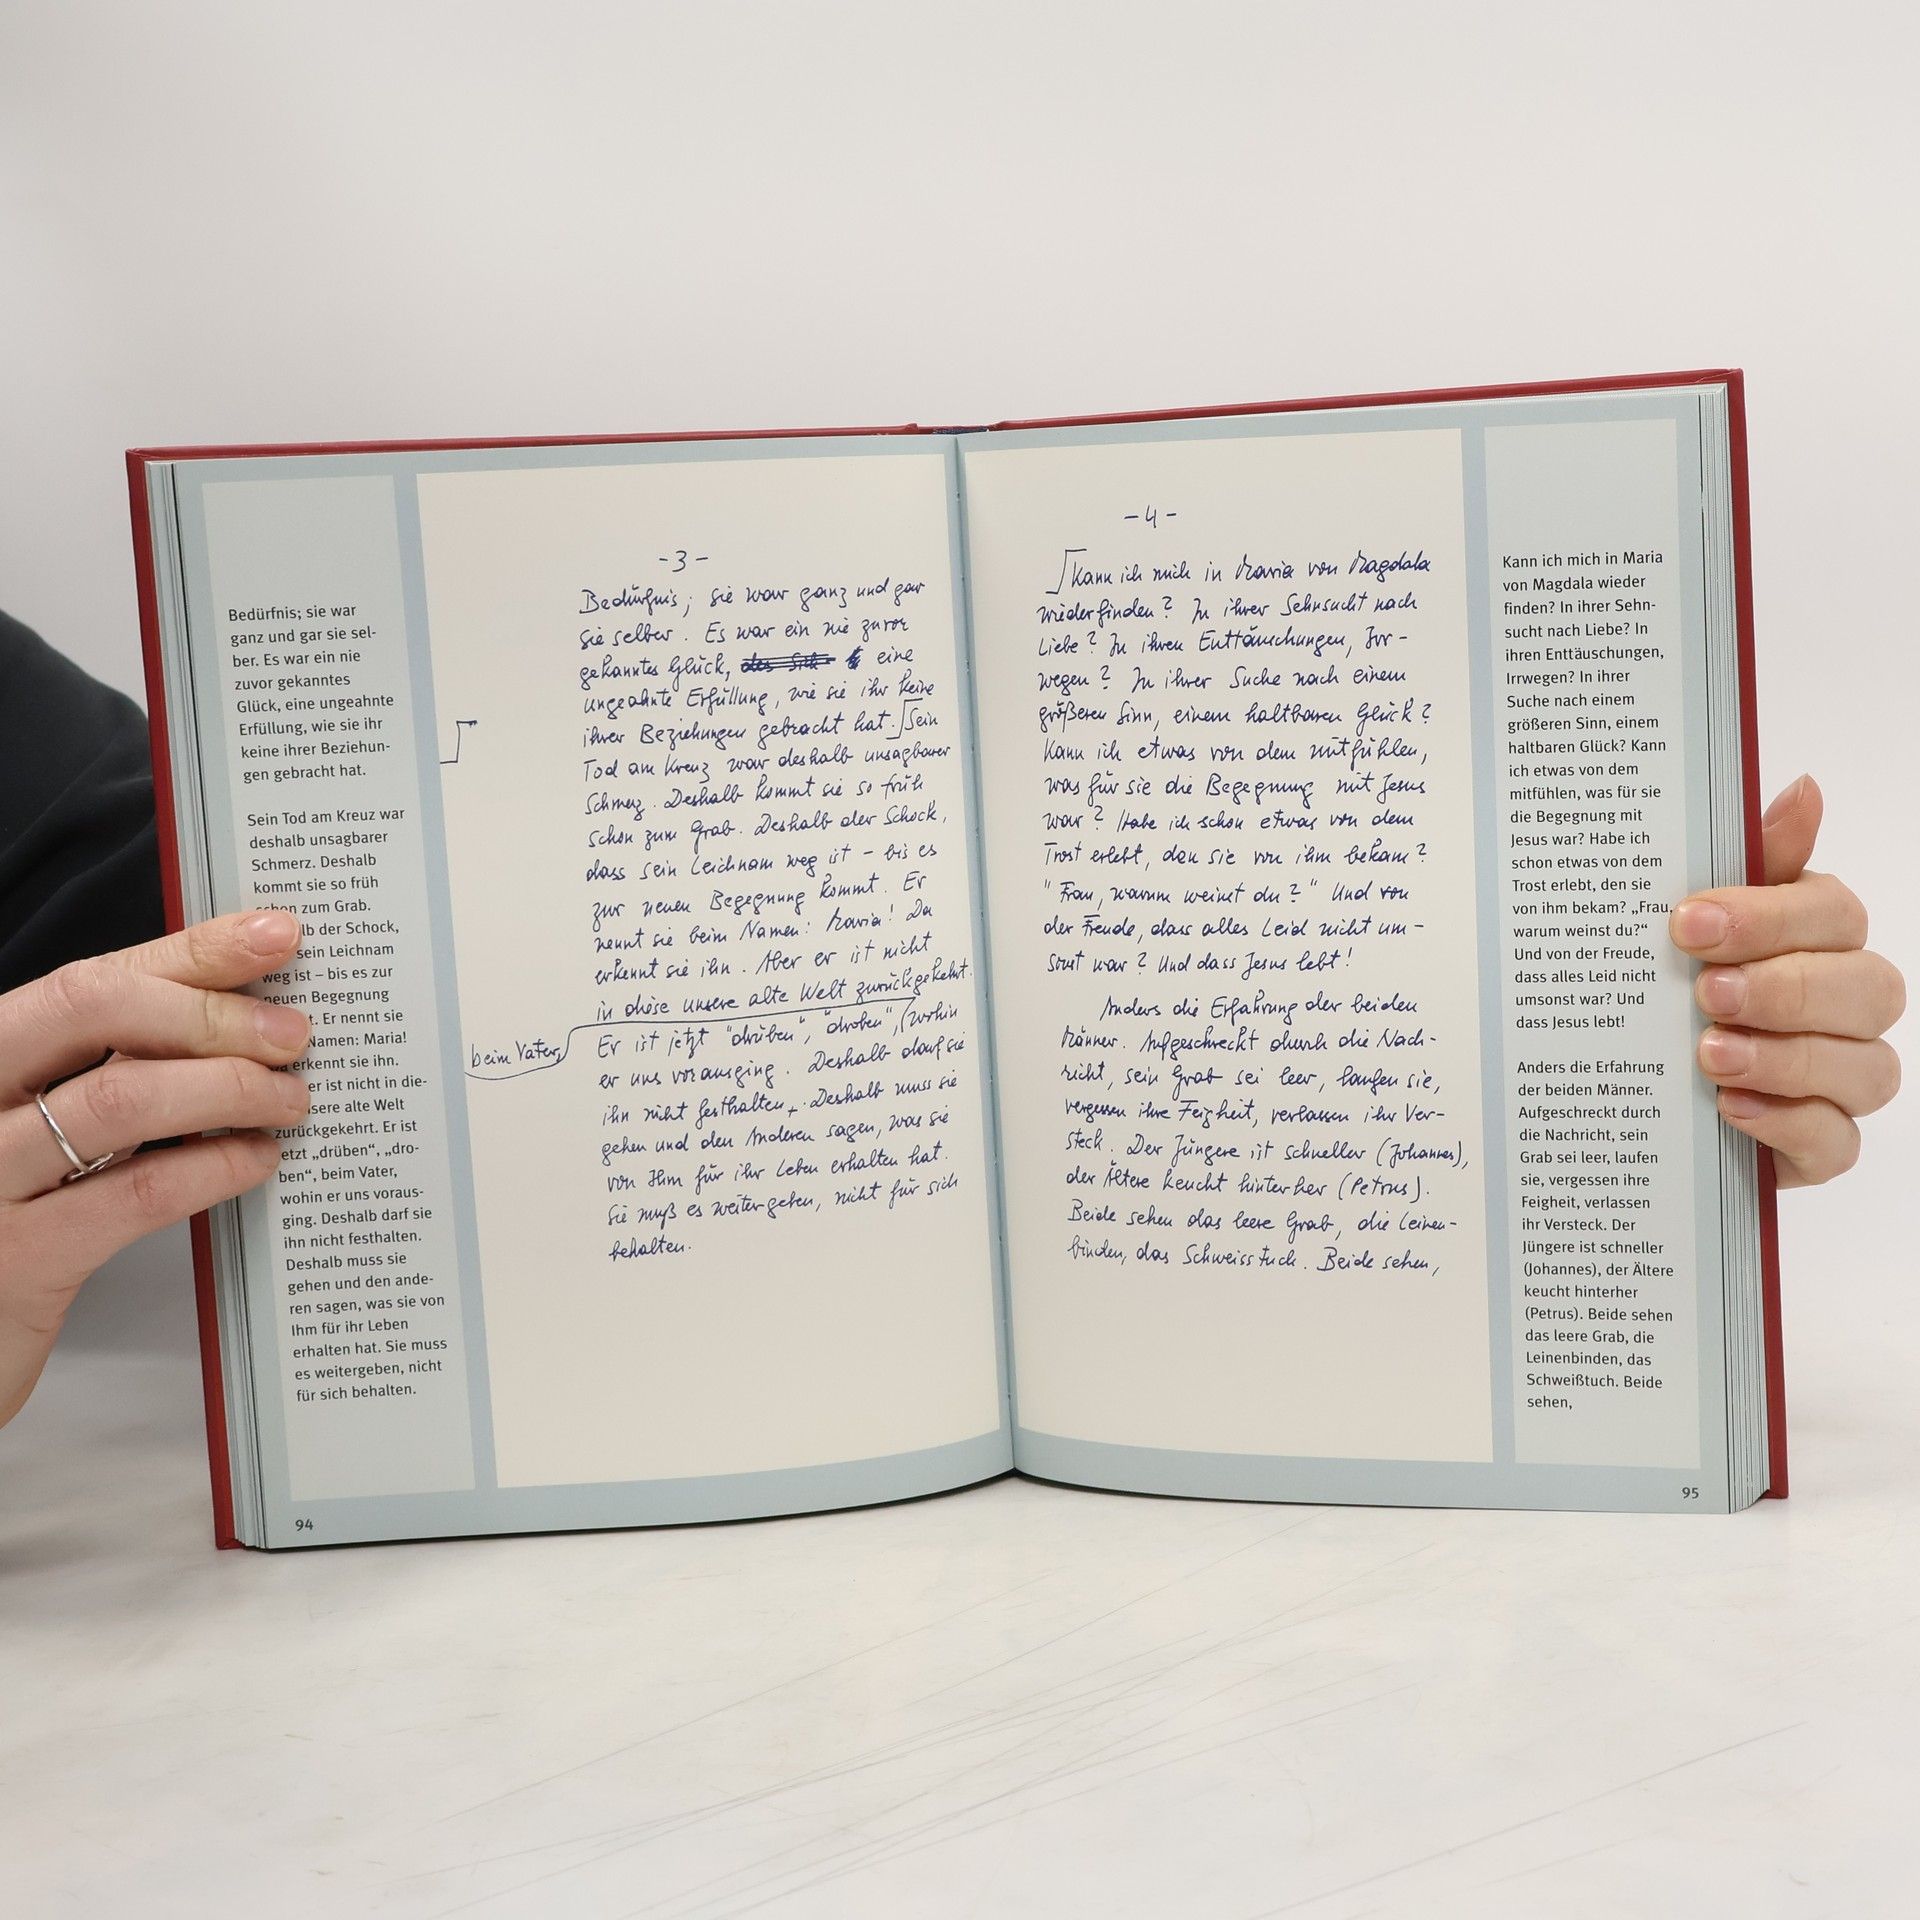 Bedürfnis; sie war
ganz und gar sie sel-
ber. Es war ein nie
zuvor gekanntes
Glück, eine ungeahnte
Erfüllung, wie sie ihr
keine ihrer Beziehun-
gen gebracht hat.
Sein Tod am Kreuz war
deshalb unsagbarer
Schmerz. Deshalb
kommt sie so früh
schon zum Grab.
der Schock,
sein Leichnam
weg ist – bis es zur
neuen Begegnung
Er nennt sie
Namen: Maria!
erkennt sie ihn.
er ist nicht in die-
unsere alte Welt
zurückgekehrt. Er ist
jetzt „drüben“, „dro-
ben“, beim Vater,
wohin er uns voraus-
ging. Deshalb darf sie
ihn nicht festhalten.
Deshalb muss sie
gehen und den ande-
ren sagen, was sie von
Ihm für ihr Leben
erhalten hat. Sie muss
es weitergeben, nicht
für sich behalten.
94
-3-
Bedürfnis; sie war ganz und gar
sie selber. Es war ein nie zuvor
gekanntes Glück, eine
ungeahnte Erfüllung, wie sie ihr keine
ihrer Beziehungen gebracht hat. Sein
Tod am Kreuz war deshalb unsagbarer
Schmerz. Deshalb kommt sie so früh
schon zum Grab. Deshalb der Schock,
dass sein Leichnam weg ist – bis es
zur neuen Begegnung kommt. Er
nennt sie beim Namen: Maria! Da
erkennt sie ihn. Aber er ist nicht
in diese unsere alte Welt zurückgekehrt.
Er ist jetzt "drüben", "droben", (wohin
beim Vater,
er uns vorausging. Deshalb darf sie
ihn nicht festhalten. Deshalb muss sie
gehen und den Anderen sagen, was sie
von Ihm für ihr Leben erhalten hat.
Sie muß es weitergeben, nicht für sich
behalten.
-4-
Kann ich mich in Maria von Magdala
wiederfinden? In ihrer Sehnsucht nach
Liebe? In ihren Enttäuschungen, Irr-
wegen? In ihrer Suche nach einem
größeren Sinn, einem haltbaren Glück?
Kann ich etwas von dem mitfühlen,
was für sie die Begegnung mit Jesus
war? Habe ich schon etwas von dem
Trost erlebt, den sie von ihm bekam?
"Frau, warum weinst du?" Und von
der Freude, dass alles Leid nicht um-
sonst war? Und dass Jesus lebt!
Anders die Erfahrung der beiden
Männer. Aufgeschreckt durch die Nach-
richt, sein Grab sei leer, laufen sie,
vergessen ihre Feigheit, verlassen ihr Ver-
steck. Der Jüngere ist schneller (Johannes),
der Ältere keucht hinterher (Petrus).
Beide sehen das leere Grab, die Leinen-
binden, das Schweisstuch. Beide sehen,
Kann ich mich in Maria
von Magdala wieder
finden? In ihrer Sehn-
sucht nach Liebe? In
ihren Enttäuschungen,
Irrwegen? In ihrer
Suche nach einem
größeren Sinn, einem
haltbaren Glück? Kann
ich etwas von dem
mitfühlen, was für sie
die Begegnung mit
Jesus war? Habe ich
schon etwas von dem
Trost erlebt, den sie
von ihm bekam? „Frau,
warum weinst du?“
Und von der Freude,
dass alles Leid nicht
umsonst war? Und
dass Jesus lebt!
Anders die Erfahrung
der beiden Männer.
Aufgeschreckt durch
die Nachricht, sein
Grab sei leer, laufen
sie, vergessen ihre
Feigheit, verlassen
ihr Versteck. Der
Jüngere ist schneller
(Johannes), der Ältere
keucht hinterher
(Petrus). Beide sehen
das leere Grab, die
Leinenbinden, das
Schweißtuch. Beide
sehen,
95